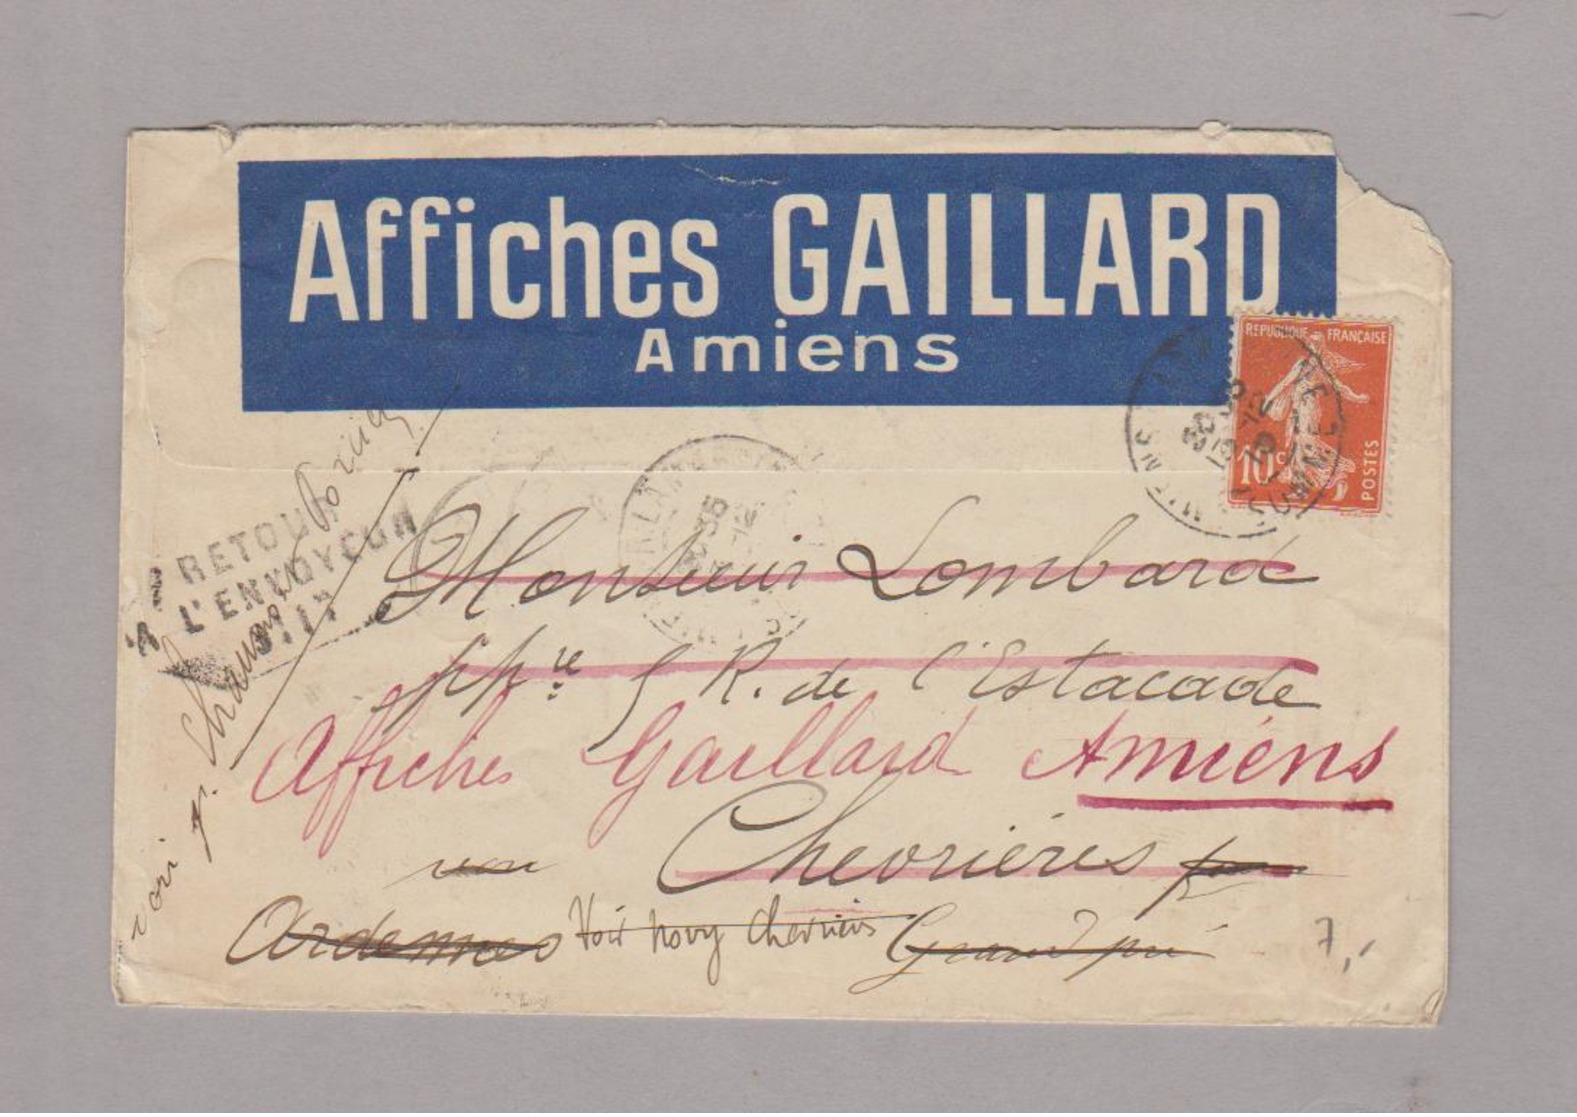 Affiches GAILLARD
Amiens
REPUBLIQUE FRANÇAISE
10c
POSTES
RETOUR
A L'ENVOYEUR
Monsieur Lombard
R. de l'Estacade
Affiches Gaillard Amiens
voir Chevrières par
Ardennes Voir Novy Chevrières Grand pré
voir p.
7,-